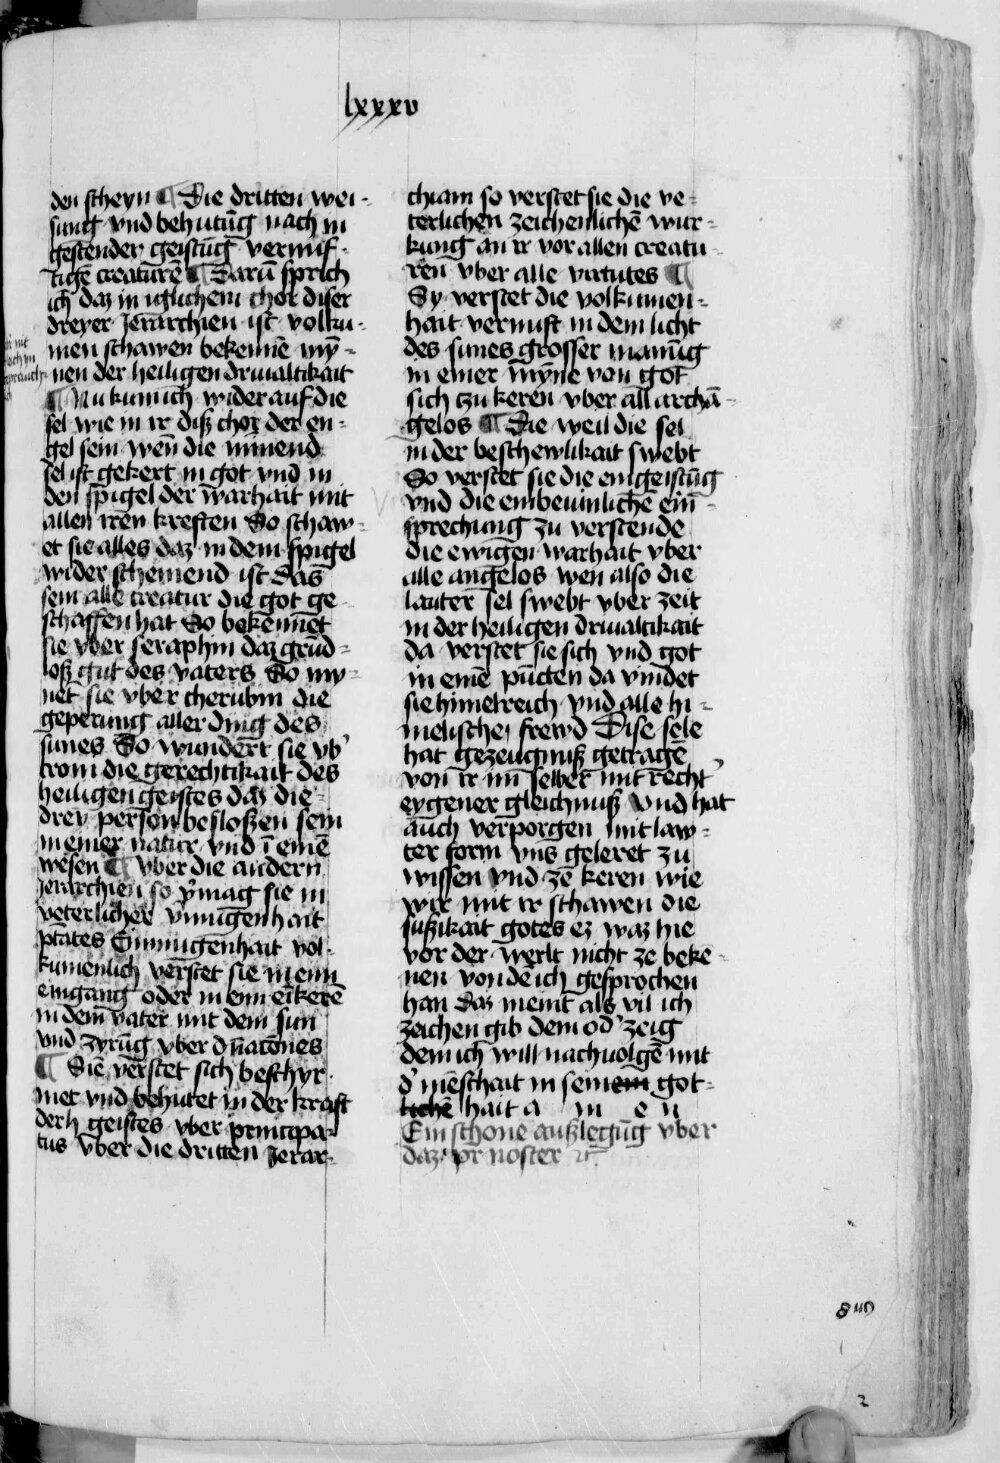 lxxxv
den scheyn ¶ Die dritten wei-
sung vnd behutūg nach in
gestender geistūg vernuf-
tigē creaturē ¶ Darū sprich
ich daz in iglichem chor diser
dreyer Jerarchien ist volku-
men schawen bekennē mȳ-
nen der heiligen driualtikait
¶ Nu kum ich wider auf die
sel wie in ir diß chor der en-
gel sein wen̄ die minend
sel ist gekert in got vnd in
den spigel der warhait mit
allen iren kreften So schaw-
et sie alles daz in dem spigel
wider scheinend ist das
sein alle creatur die got ge-
schaffen hat So bekennet
sie vber seraphin daz grūd-
loß gut des vaters So my-
net sie vber cherubin die
geperung aller ding des
sunes So wundert sie vb'
troni die gerechtikait des
heiligen geistes daz die
drey person besloßen sein
in einer natur vnd ī einē
wesen ¶ vber die andern
Jerarchien so v̄mag sie in
veterlicher v̄mugenhait
ptātes Einmugenhait vol-
kumenlich verstet sie in ein
eingang oder in ein eīkerē
in dem vater mit dem sun
vnd zyrūg vber dn̄atōnes
¶ Sie verstet sich beschyr-
met vnd behutet in der kraft
der h geistes vber principa-
tus vber die dritten Jerar-
chiam so verstet sie die ve-
terlichen zeichenlichē wur-
kung an ir vor allen creatu-
ren vber alle virtutes ¶
Sy verstet die volkumen-
hait vernuft in dem licht
des sunes grosser manūg
in einer mȳne von got
sich tzu keren vber all archā-
gelos ¶ Die weil die sel
in der beschewlikait swebt
So verstet sie die eingeistūg
vnd die einbeuinlichē ein-
sprechung zu verstende
die ewigen warhait vber
alle angelos wen also die
lauter sel swebt vber zeit
in der heiligen driualtikait
da verstet sie sich vnd got
in einē pūcten da vindet
sie himelreich vnd alle hi-
melische frewd Dise sele
hat gezeugnuß getragē
von ir im selber mit recht
eygener gleichnuß vnd hat
auch verporgen mit law-
ter form vns geleret zu
wissen vnd zē keren wie
wir mit ir schawen die
sußikait gotes ez waz hie
vor der werlt nicht ze bekē-
nen von dē ich gesprochen
han daz meint als vil ich
zeichen gib dem od' zeig
dem ich will nachuolgē mit
d' mēschait in seinem got-
lichē hait a m e n
Ein schone außlegūg vber
daz pr noster